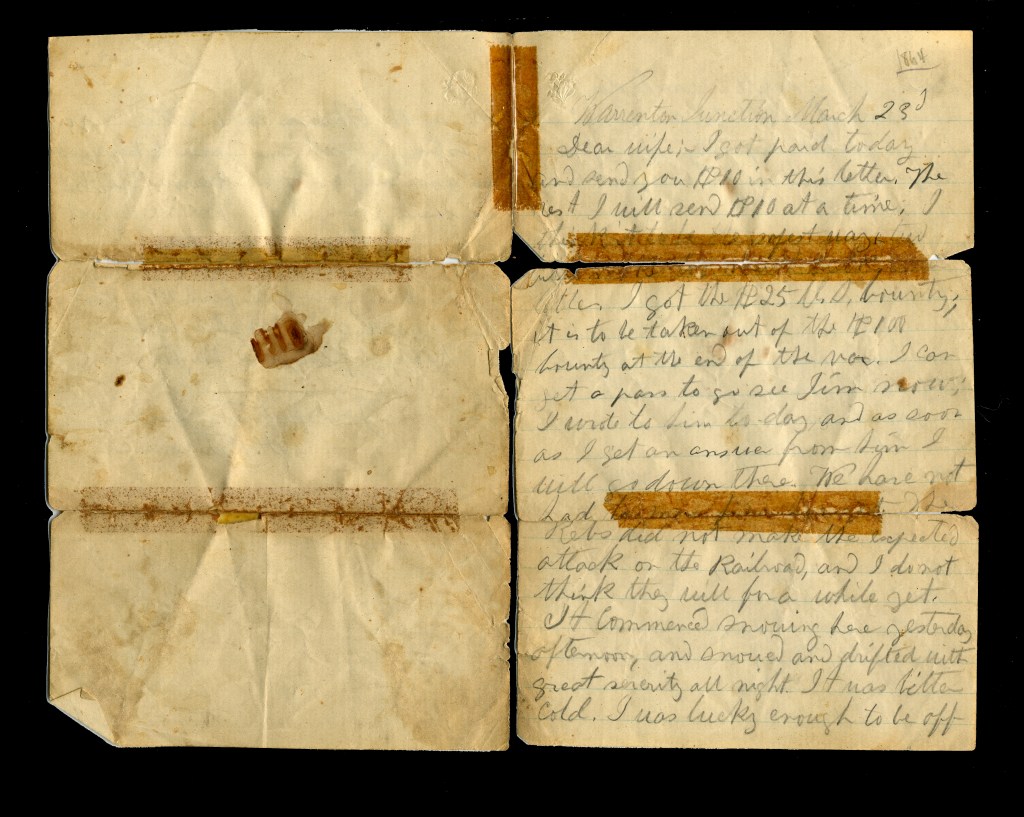 1864
Warrenton Junction March 23d
Dear wife; I got paid today
and send you $10 in this letter. The
rest I will send $10 at a time; I
letter. I got the $25 U.S. bounty;
it is to be taken out of the $100
bounty at the end of the war. I can
get a pass to go see Jim now;
I wrote to him to-day and as soon
as I get an answer from him I
will go down there. We have not
had
Rebs did not make the expected
attack on the Railroad, and I do not
think they will for a while yet.
It Commenced snowing here yesterday
afternoon, and snowed and drifted with
great severity all night. It was bitter
cold. I was lucky enough to be off